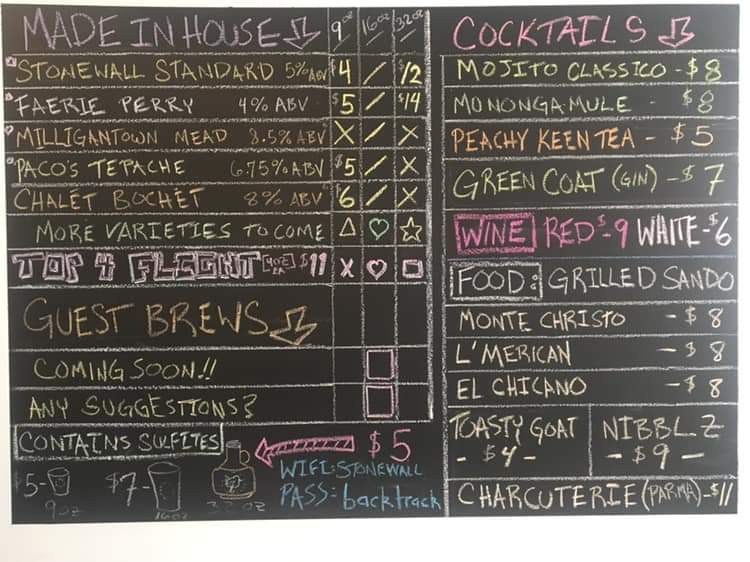 MADE IN HOUSE 9oz 16oz 32oz
STONEWALL STANDARD 5% ABV $4 / $12
FAERIE PERRY 4% ABV $5 / $14
MILLIGANTOWN MEAD 8.5% ABV X / X
PACO'S TEPACHE 6.75% ABV $5 / X
CHALET BOCHET 8% ABV $6 / X
MORE VARIETIES TO COME
TOP 4 FLIGHT $11 X
GUEST BREWS
COMING SOON!!
ANY SUGGESTIONS?
CONTAINS SULFITES
$5
$5- $7-
9oz 16oz 32oz
WIFI: STONEWALL
PASS: backtrack
COCKTAILS
MOJITO CLASSICO - $8
MONONGA-MULE - $8
PEACHY KEEN TEA - $5
GREEN COAT (GIN) - $7
WINE RED $-9 WHITE-$6
FOOD: GRILLED SANDO
MONTE CHRISTO - $8
L'MERICAN - $8
EL CHICANO - $8
TOASTY GOAT
- $4 -
NIBBLZ
- $9 -
CHARCUTERIE (PARMA) - $11